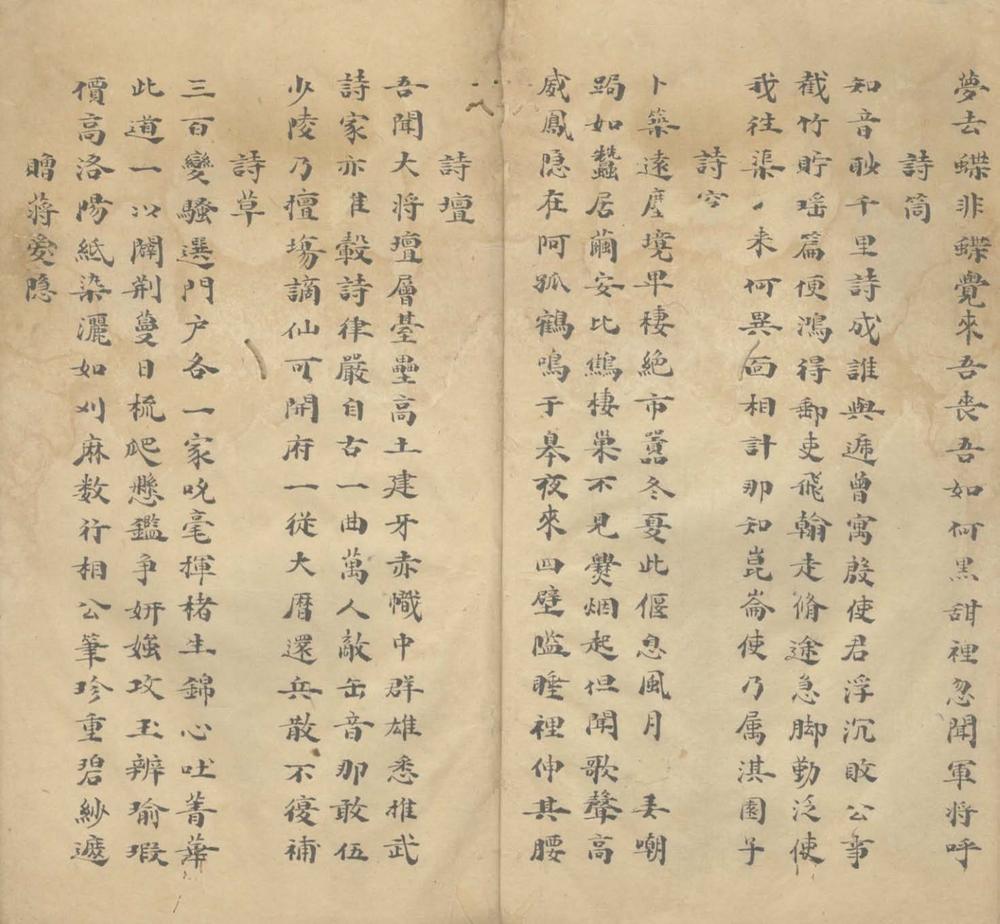 夢去蝶非蝶覺來吾喪吾如何黑甜裡忽聞軍將呼
詩筒
知音耿千里詩成誰與遞曾寓殷使君浮沉敗公事
截竹貯瑤篇便鴻得郵吏飛翰走脩途急脚勤泛使
我往渠〻来何異面相計那知崑崙使乃属淇園子
詩窄
卜築遠塵境卑棲絶市囂冬夏此偃息風月 嘲
跼如蠶居繭安比鷦棲巢不見爨烟起但聞歌聲高
威鳳隐在阿孤鶴鳴于皋夜來四壁隘睡裡伸其腰
詩壇
吾聞大将壇層臺壘高土建牙赤幟中群雄悉推武
詩家亦推轂詩律嚴自古一曲萬人敵缶音那敢伍
少陵乃壇塲謫仙可開府一從大暦還兵散不復補
詩草
三百變騷選門户各一家吮毫揮楮生錦心吐菁華
此道一以闢荆蔓日梳爬懸鑑争妍媸攻玉辨瑜瑕
價高洛陽紙染灑如刈麻数行相公筆珍重碧紗遮
贈蒋愛隐